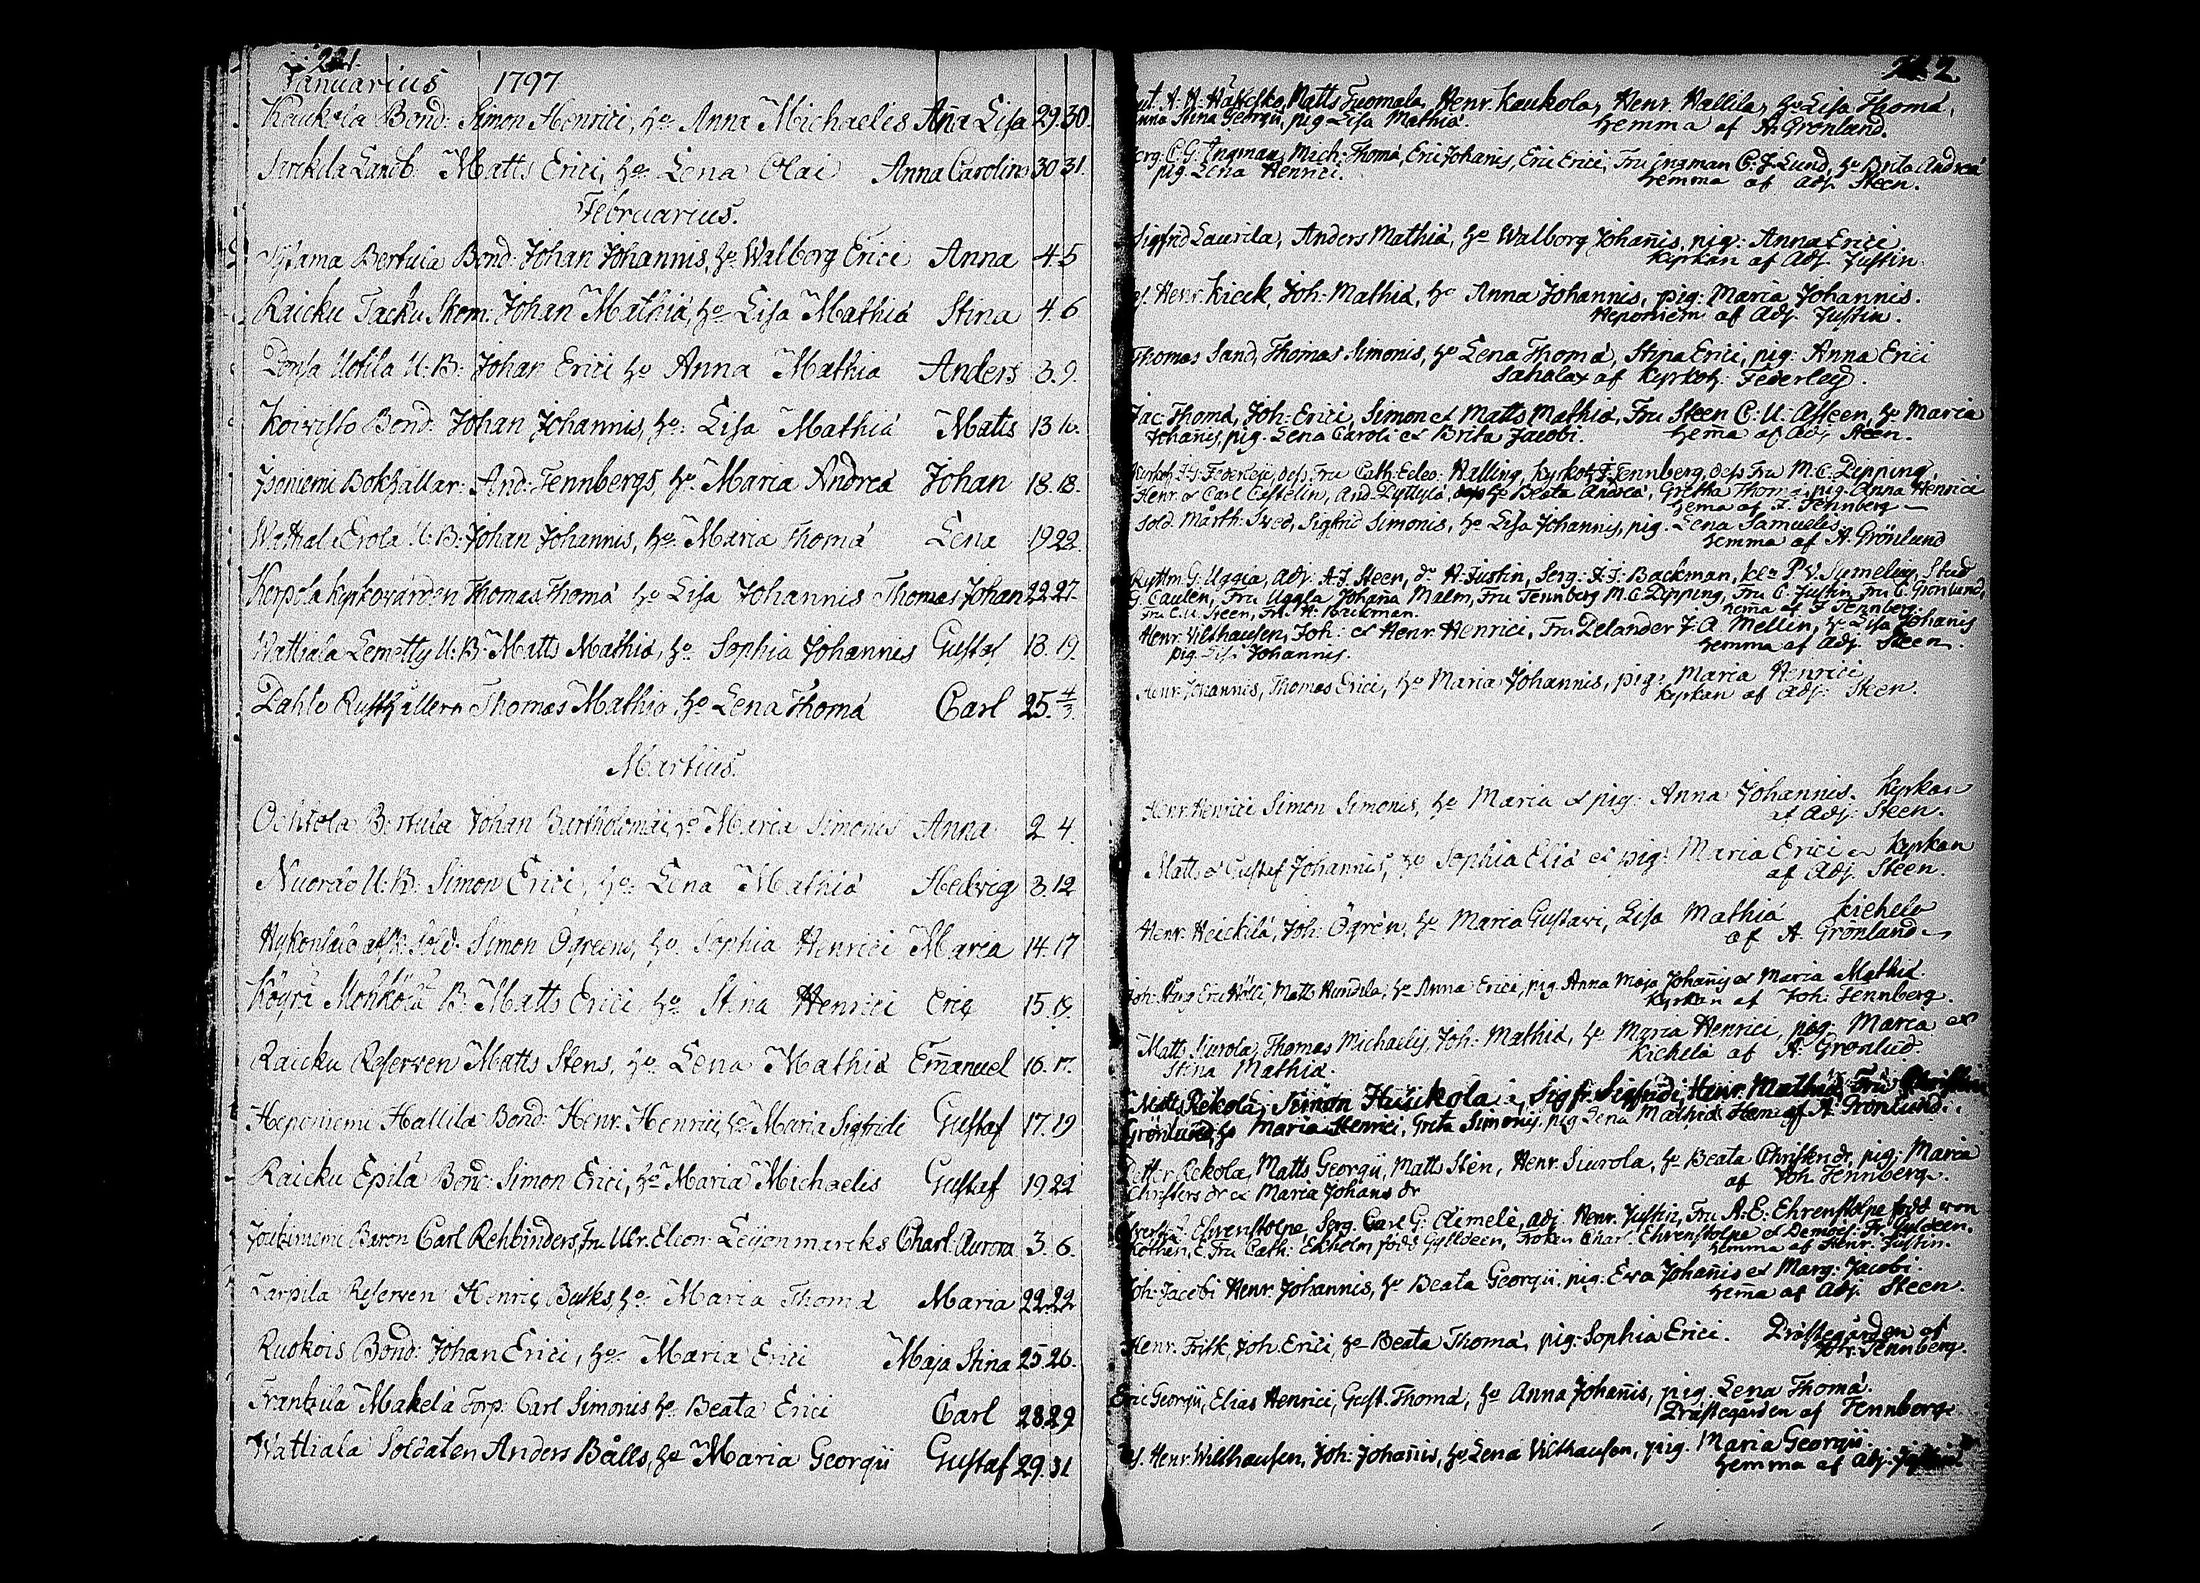 221.
Januarius 1797
Kaukola Bond: Simon Henrici, hu Anna Michaelis Aña Lisa 29. 30.
Landb: Matts Erici, hu Lena Olai Anna Carolina 30 31.
Februarius.
Bertula Bond: Johan Johannis, hu Walborg Erici Anna 4. 5
Raicku Jacku Skom: Johan Mathiæ, hu Lisa Mathiæ Stina 4. 6
Uotila U: B: Johan Erici hu Anna Mathiæ Anders 3. 9.
Koivisto Bond: Johan Johannis, hu: Lisa Mathiæ Matts 13
Bokhållar: And: Tennbergs, hu. Maria Andreæ Johan 18. 18.
Erola U: B: Johan Johannis, hu: Maria Thomæ Lena 19 22.
Korpola kyrkovärden Thomas Thomæ hu Lisa Johannis Thomas Johan 22. 27.
Wattiala Lemetty U: B: Matts Mathiæ, hu. Sophia Johannis Gustaf 18. 19.
Dahlo Rusthållern Thomas Mathiæ, hu Lena Thomæ Carl 25. 4/3.
Martius.
Ochtola Bertula Johan Bartholomæi, hu Maria Simonis Anna 2 4.
U: B: Simon Erici, hu: Lena Mathiæ Hedvig 3. 12
Sold: Simon Ögreens, hu. Sophia Henrici Maria 14. 17
Mohkola B. Matts Erici hu Stina Henrici Eric 15. 19.
Raicku Reserven Matts Stens, hu: Lena Mathiæ Em̃anuel 16. 17.
Heponiemi Hallila Bond: Henr: Henrici, hu Maria Sigfridi Gustaf 17. 19
Raicku Epilä Bond: Simon Erici, hu Maria Michaelis Gustaf 19. 21
Baron Carl Rehbinders, fru Ulr. Eleon: Leijonmarcks Charl: Aurora 3. 6.
Reserven Henric Busks, hu: Maria Thomæ Maria 22. 22
Ruokois Bond: Johan Erici, hu: Maria Erici Maja Stina 25 26.
Frantzila Makelä Torp: Carl Simonis hu: Beata Erici Carl 28 29
Wattiala Soldaten Anders Bålls, hu Maria Georgii Gustaf 29. 31
Matts Tuomala, Henr. Kaukola, Henr. Hallila, hu Lisa Thomæ,
Stina Georgii, pig Lisa Mathiæ. hemma af A: Grönland.
C: G: Ingman, Mich: Thomæ, Eric Johanis, Eric Erici, Fru Ingman C: J: Lund, hu Brita Andreæ
pig. Lena Henrici. hemma af Adj. Steen.
Sigfrid Laurila, Anders Mathiæ, hu Walborg Johañis, pig: Anna Erici.
kyrkan af Adj. Justin.
Henr. Kicek, Joh: Mathiæ, hu Anna Johannis, pig: Maria Johannis.
Heponiemi af Adj. Justin.
Thomas Sand, Thomas Simonis, hu Lena Thomæ, Stina Erici, pig: Anna Erici
Sahalax af kyrkoh: Federley.
Jac: Thomæ, Joh: Erici, Simon et Matts Mathiæ, Fru Steen C: U: Alleen, hu Maria
Johañis, pig. Lena Caroli et Brita Jacobi. hem̃a af Adj. Steen.
Federley, dess Fru Cath: Eleo: Walling, kyrkoh: J: Tennberg, dess Fru M: C: Dipping,
Henr: et Carl Castelin, And: hu Beata Andreæ, Gretha pig: Anna Henrici
hem̃a af J. Tennberg
Sold: Mårth: Sved, Sigfrid Simonis, hu Lisa Johannis, pig. Lena Samuelis.
hemma af A: Grönlund
Ryttm: G: Uggla, Adj: A: J: Steen, do H: Justin, Serg: A: J: Backman,
Fru Uggla Johaña Malm, Fru Tennberg M: C: Dipping, Fru C: Justin, Fru C: Grönlund,
Fru C: U: Steen, hem̃a af J Tennberg.
Henr: Vilthausen, Joh: et Henr: Henrici, Fru Zelander J: A Mellin, hu Lisa Johanis
pig. Lisa Johannis. hemma af Adj. Steen.
Henr: Johannis, Thomas Erici, hu Maria Johannis, pig: Maria Henrici
kyrkan af Adj: Steen.
Henr: Henrici Simon Simonis, hu Maria et pig: Anna Johannis. kyrkan
af Adj: Steen.
Matts et Gustaf Johannis, hu Sophia Eliæ et pig: Maria Erici kyrkan
af Adj. Steen.
Henr: Heickilä, Joh: Ögrén, hu Maria Gustavi, Lisa Mathiæ
af A: Grönland
Joh: Eric Matts hu Anna Erici, pig. Anna Maja Johañis et Maria Mathiæ.
kyrkan af Joh: Tennberg.
Matts Siurola, Thomas Michaelis, Joh: Mathiæ, hu Maria Henrici, pig: Maria et
Stina Mathiæ. af A: Grönlund.
Matts Rekola, Simon Sigfr: Sigfridi, Henr: Mathiæ, Fru
Grönlund, hu Maria Henrici, Greta Simonis, pig Lena Mathiæ Hem̃a af A: Grönlund.
Petter Rekola, Matts Georgii, Matts Sten, Henr: Siurola, hu Beata Christers dr, pig: Maria
Christers dr et Maria Johans dr af Joh: Tennberg.
Ehrenstolpe Serg. Carl G: Aimelé, Adj. Henr. Justin, Fru A: E: Ehrenstolpe född von
Kothen, Fru Cath: Ekholm född Gyldeen, Froken Char: Ehrenstolpe et Demois: Fr: Gyldeen.
hemma af Henr. Justin.
Joh: Jacobi Henr: Johannis, hu Beata Georgii, pig: Eva Johañis et Marg: Jacobi.
hem̃a af Adj. Steen.
Henr: Frisk, Joh: Erici, hu Beata Thomæ, pig: Sophia Erici. Prästegården af
Joh: Tennberg.
Eric Georgii, Elias Henrici, Gust: Thomæ, hu Anna Johañis, pig. Lena Thomæ.
Prästegården af Tennberg.
Henr: Wilthausen, Joh: Johañis, hu Lena Vilthausen, pig. Maria Georgii
hemma af Adj. Justin